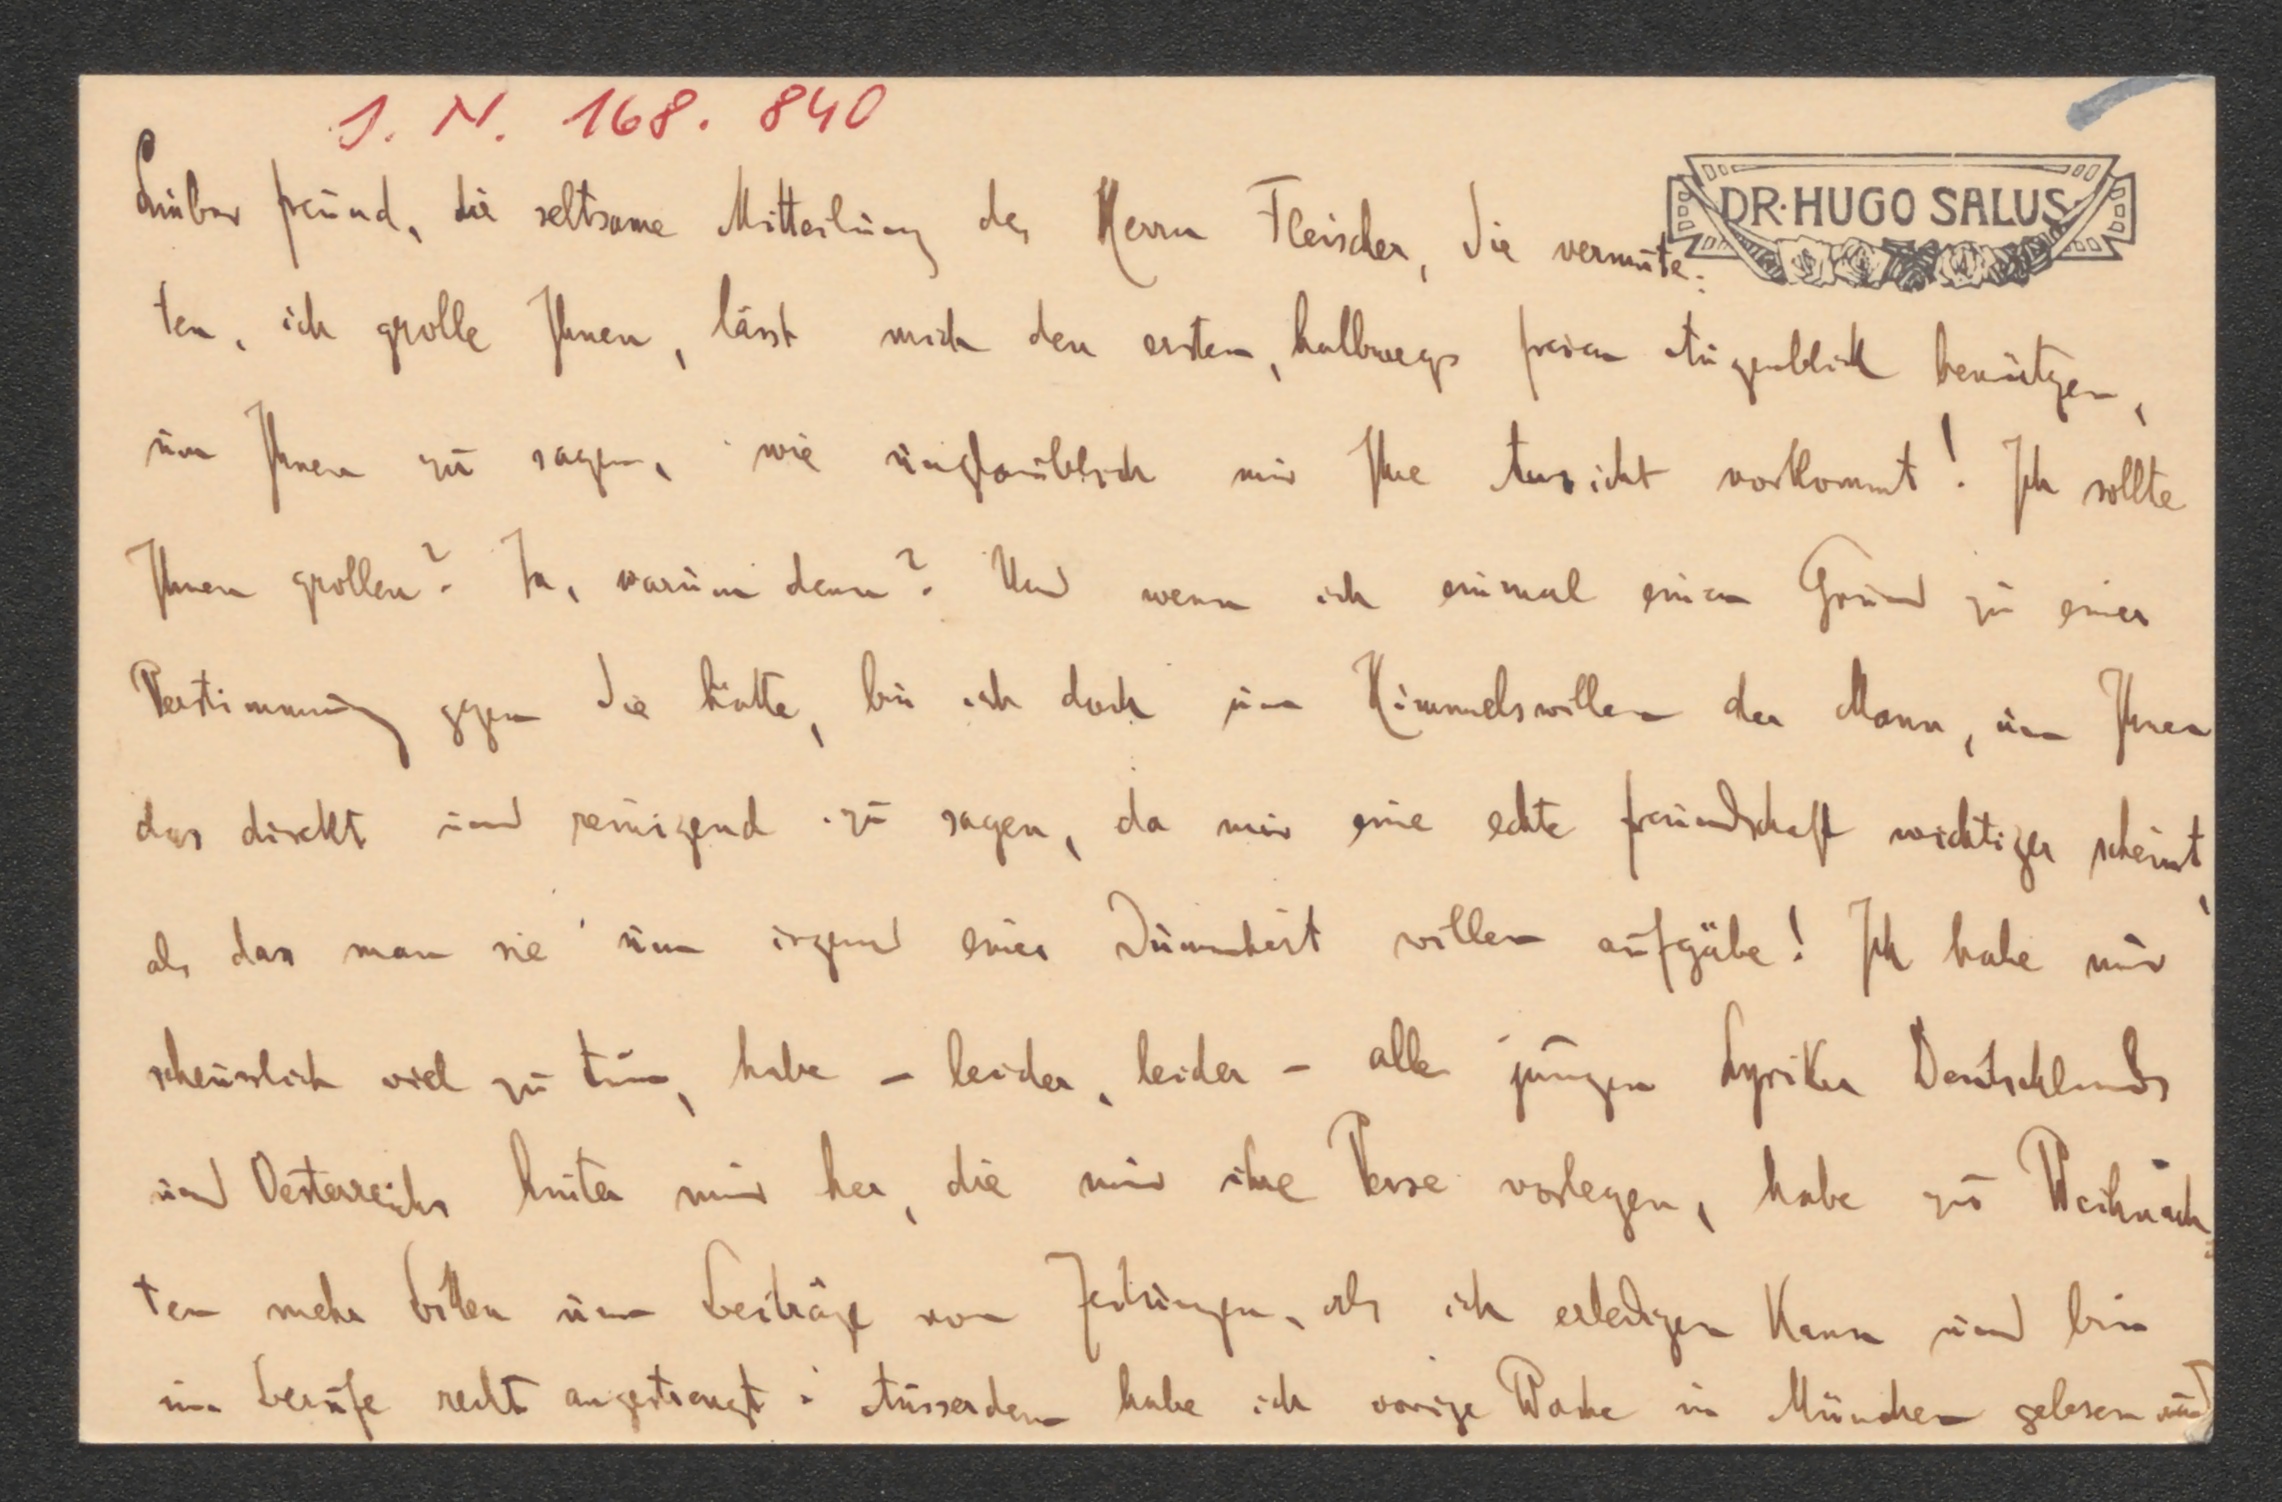 J. N. 168.840
DR. HUGO SALUS
Lieber Freund, die seltsame Mitteilung des Herrn Fleischer, Sie vermute-
ten, ich grolle Ihnen, lässt mich den ersten, halbwegs freien Augenblick benützen,
um Ihnen zu sagen, wie unglaublich mir Ihre Ansicht vorkommt! Ich sollte
Ihnen grollen? Ja, warum denn? Und wenn ich einmal einen Grund zu einer
Verstimmung gegen Sie hätte, bin ich doch um Himmelswillen der Mann, um Ihnen
das direkt und reinigend zu sagen, da mir eine echte Freundschaft wichtiger scheint,
als dass man sie um irgend einer Dummheit willen aufgäbe! Ich habe nur
scheusslich viel zu tun, habe – leider, leider – alle jungen Lyriker Deutschlands
und Oesterreichs hinter mir her, die mir ihre Verse vorlegen, habe zu Weihnach-
ten mehr Bitten um Beiträge von Zeitungen, als ich erledigen kann und bin
im Berufe recht angestrengt; Ausserdem habe ich vorige Woche in München gelesen und